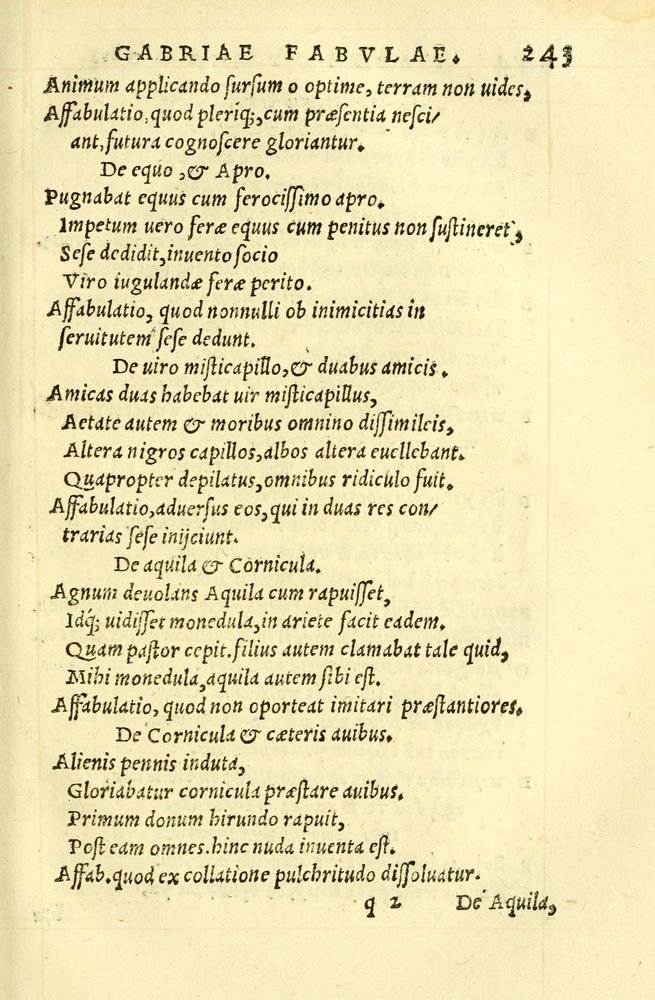 GABRIAE FABVLAE. 243
Animum applicando ſurſum o optime, terram non uides,
Affabulatio, quod pleriq;, cum præſentia neſci/
ant, futura cognoſcere gloriantur.
De equo, & Apro.
Pugnabat equus cum ferociſſimo apro.
Impetum uero feræ equus cum penitus non ſuſtineret,
Seſe dedidit, inuento ſocio
Viro iugulandæ feræ perito.
Affabulatio, quod nonnulli ob inimicitias in
ſeruitutem ſeſe dedunt.
De uiro miſticapillo, & duabus amicis.
Amicas duas habebat uir miſticapillus,
Aetate autem & moribus omnino diſſimileis,
Altera nigros capillos, albos altera euellebant.
Quapropter depilatus, omnibus ridiculo fuit.
Affabulatio, aduerſus eos, qui in duas res con/
trarias ſeſe inijciunt.
De aquila & Cornicula.
Agnum deuolans Aquila cum rapuiſſet,
Idq; uidiſſet monedula, in ariete facit eadem.
Quam paſtor cepit. filius autem clamabat tale quid,
Mihi monedula, aquila autem ſibi eſt.
Affabulatio, quod non oporteat imitari præſtantiores.
De Cornicula & cæteris auibus.
Alienis pennis induta,
Gloriabatur cornicula præſtare auibus.
Primum donum hirundo rapuit,
Poſt eam omnes. hinc nuda inuenta eſt.
Affab. quod ex collatione pulchritudo diſſoluatur.
q 2 De Aquila,